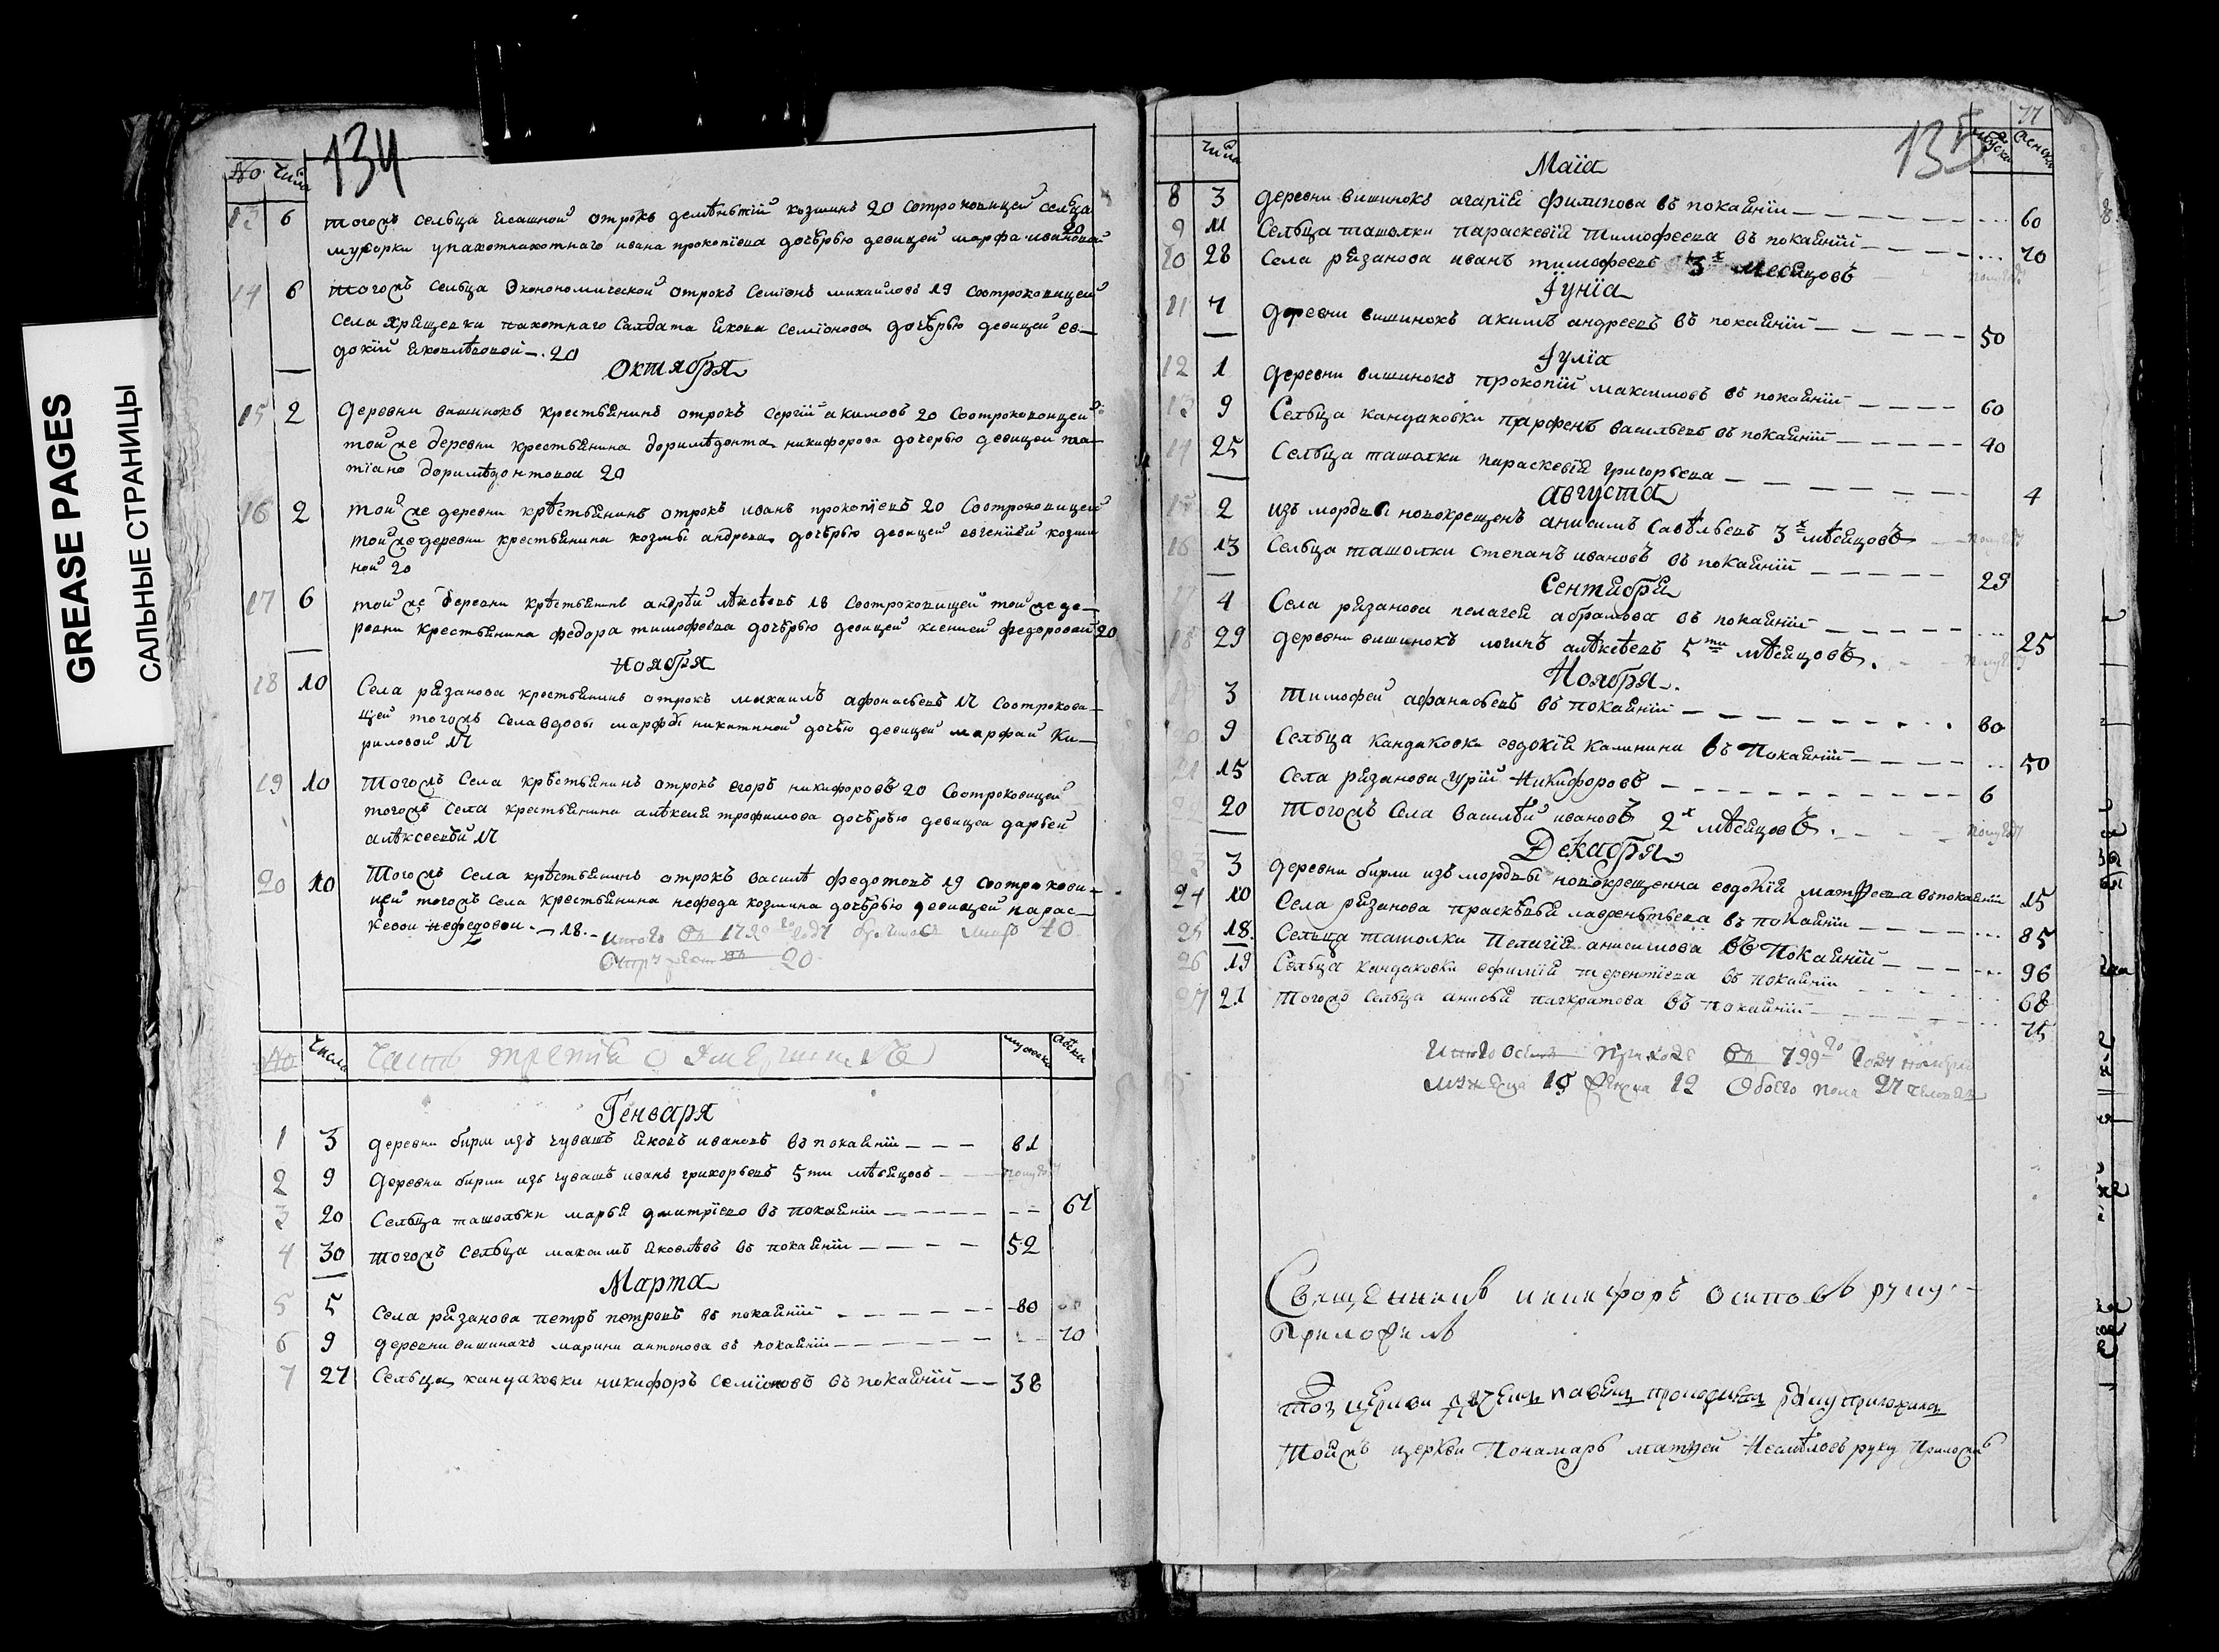 GREASE PAGES
САЛЬНЫЕ СТРАНИЦЫ
134
№ Числа
13 6 тогожъ сельца ясашной отрокъ дементiй козминъ 20 Сотроковицей сельца
мусорки упахотнаго ивана прокопiева дочѣрью девицей марфа ивановай 20
14 6 тогожъ сельца Экономической отрокъ Семiонъ михаиловъ 19 Соотроковицей
села Хрящевки пахотнаго Салдата якова семiонова дочѣрью девицей ев–
докiй яковлѣвой –. 20
Октября
15 2 деревни вишинокъ крестьянинъ отрокъ сергiй акимовъ 20 Соотроковицей
той же деревни крестьянина доримѣдонта никифорова дочерью девицей та–
тiано доримѣдонтовой 20
16 2 той же деревни крѣстьянинъ отрокъ иванъ прокопiевъ 20 Соотроковицей
той же деревни крестьянина козмы андреева дочѣрью девицей евгенiей козми
ной 20
17 6 той же деревни крѣстьянинъ андрѣй алѣксѣевъ 18 Соотроковицей той же де–
ревни крестьянина федора тимофеева дочѣрью девицей ксенией федоровай 20
Ноября
18 10 Села рязанова крестьянинъ отрокъ михаилъ афонасьевъ 17 Соотрокови–
цей тогожъ села вдовы марфы никитиной дочѣрью девицей марфай Ки–
риловой 17
19 10 Тогожъ Села крѣстьянинъ отрокъ егоръ никифоровъ 20 Соотроковицей
тогожъ села крестьянина алѣксея трофимова дочѣрью девицей дарьей
алѣксеевый 17
20 10 Тогожъ Села крѣстьянинъ отрокъ василѣ федотовъ 19 соотрокови–
цей тогожъ села крестьянина нефеда козмина дочѣрью девицей парас–
кевои нефедовои – 18. –
Итого въ 1799го годѣ 40
20
№ Числа Часть третiя о умершихъ мужеска женска
Генваря
1 3 деревни бирли изъ чувашъ яковъ ивановъ въ покаянiи – – – 81
2 9 Деревни бирли изъ чувашъ иванъ григорьевъ 5ти мѣсяцовъ –
3 20 Сельца ташолки марья дмитрiева въ покаянiи – – – – – 61
4 30 тогожъ сельца максимъ яковлѣвъ въ покаянiи – – – – 52
Марта
5 5 Села рязанова петръ петровъ въ покаянiи – – – – – 80
6 9 деревни вишинакъ марина антонова въ покаянiи – – – – – 70
7 27 Сельца кандаковки никифоръ Семiоновъ въ покаянiй – – 38
77
135
Числа мужеска женска
Маiа
8 3 деревни вишинокъ агарiя филипова въ покаянiи – – – – – – 60
9 11 Сельца ташолки параскевiя тимофеева въ покаянiй – – – – 70
10 28 Села рязанова иванъ тимофеевъ 3х месяцовъ
Iунiа
11 7 деревни вишинокъ акимъ андреевъ въ покаянiй – – – – – 50
Iулiа
12 1 деревни вишинокъ прокопiй максимовъ въ покаянiи – – – – 60
13 9 Сельца кандаковки парфенъ васильевъ въ покаянiй – – – – 40
14 25 Сельца ташолки параскевiя григорьева – – – – – – 4
августа
15 2 изъ мордвы новокрещенъ анисимъ савѣльевъ 3х мѣсяцовъ
16 13 Сельца ташолки степанъ ивановъ въ покаянiи – – – – – 29
Сентября
17 4 Села рязанова пелагея абрамова въ покаянiи – – – – – 25
18 29 деревни вишинокъ логинъ алѣксѣевъ 5ти мѣсяцовъ.
Ноября.
19 3 тимофей афанасьевъ въ покаянiи – – – – – – 80
20 9 Сельца кандаковки евдокiя калинина въ Покаянiй – – – – – 50
21 15 Села рязанова гурiй Никифоровъ – – – – – – – – – 6
22 20 Тогожъ Села василѣй ивановъ 2х мѣсяцовъ.
Декабря
23 3 деревни бирли изъ мордвы новокрещенна евдокiя матфеева въ покаянiи 15
24 10 Села рязанова праскѣвья лаврентьева въ покаянiи – – – – 85
25 18. Сельца ташолки Пелагiя анисимова въ Покаянiй – – – – 96
26 19 Сельца кандаковки ефимiя терентiева въ покаянiи 68
27 21 тогожъ сельца анисья панкратова въ покаянiй 75
Итого въ приходе въ 799го году померло
мужеска 15 женска 12 Обоего пола 27 человек
Священникъ никифоръ осиповъ руку
Приложилъ
Тоя церкви дьячекъ павелъ прокофьевъ руку приложилъ
Тойжъ церкви Понамарь матвей Несмѣловъ руку Приложилъ